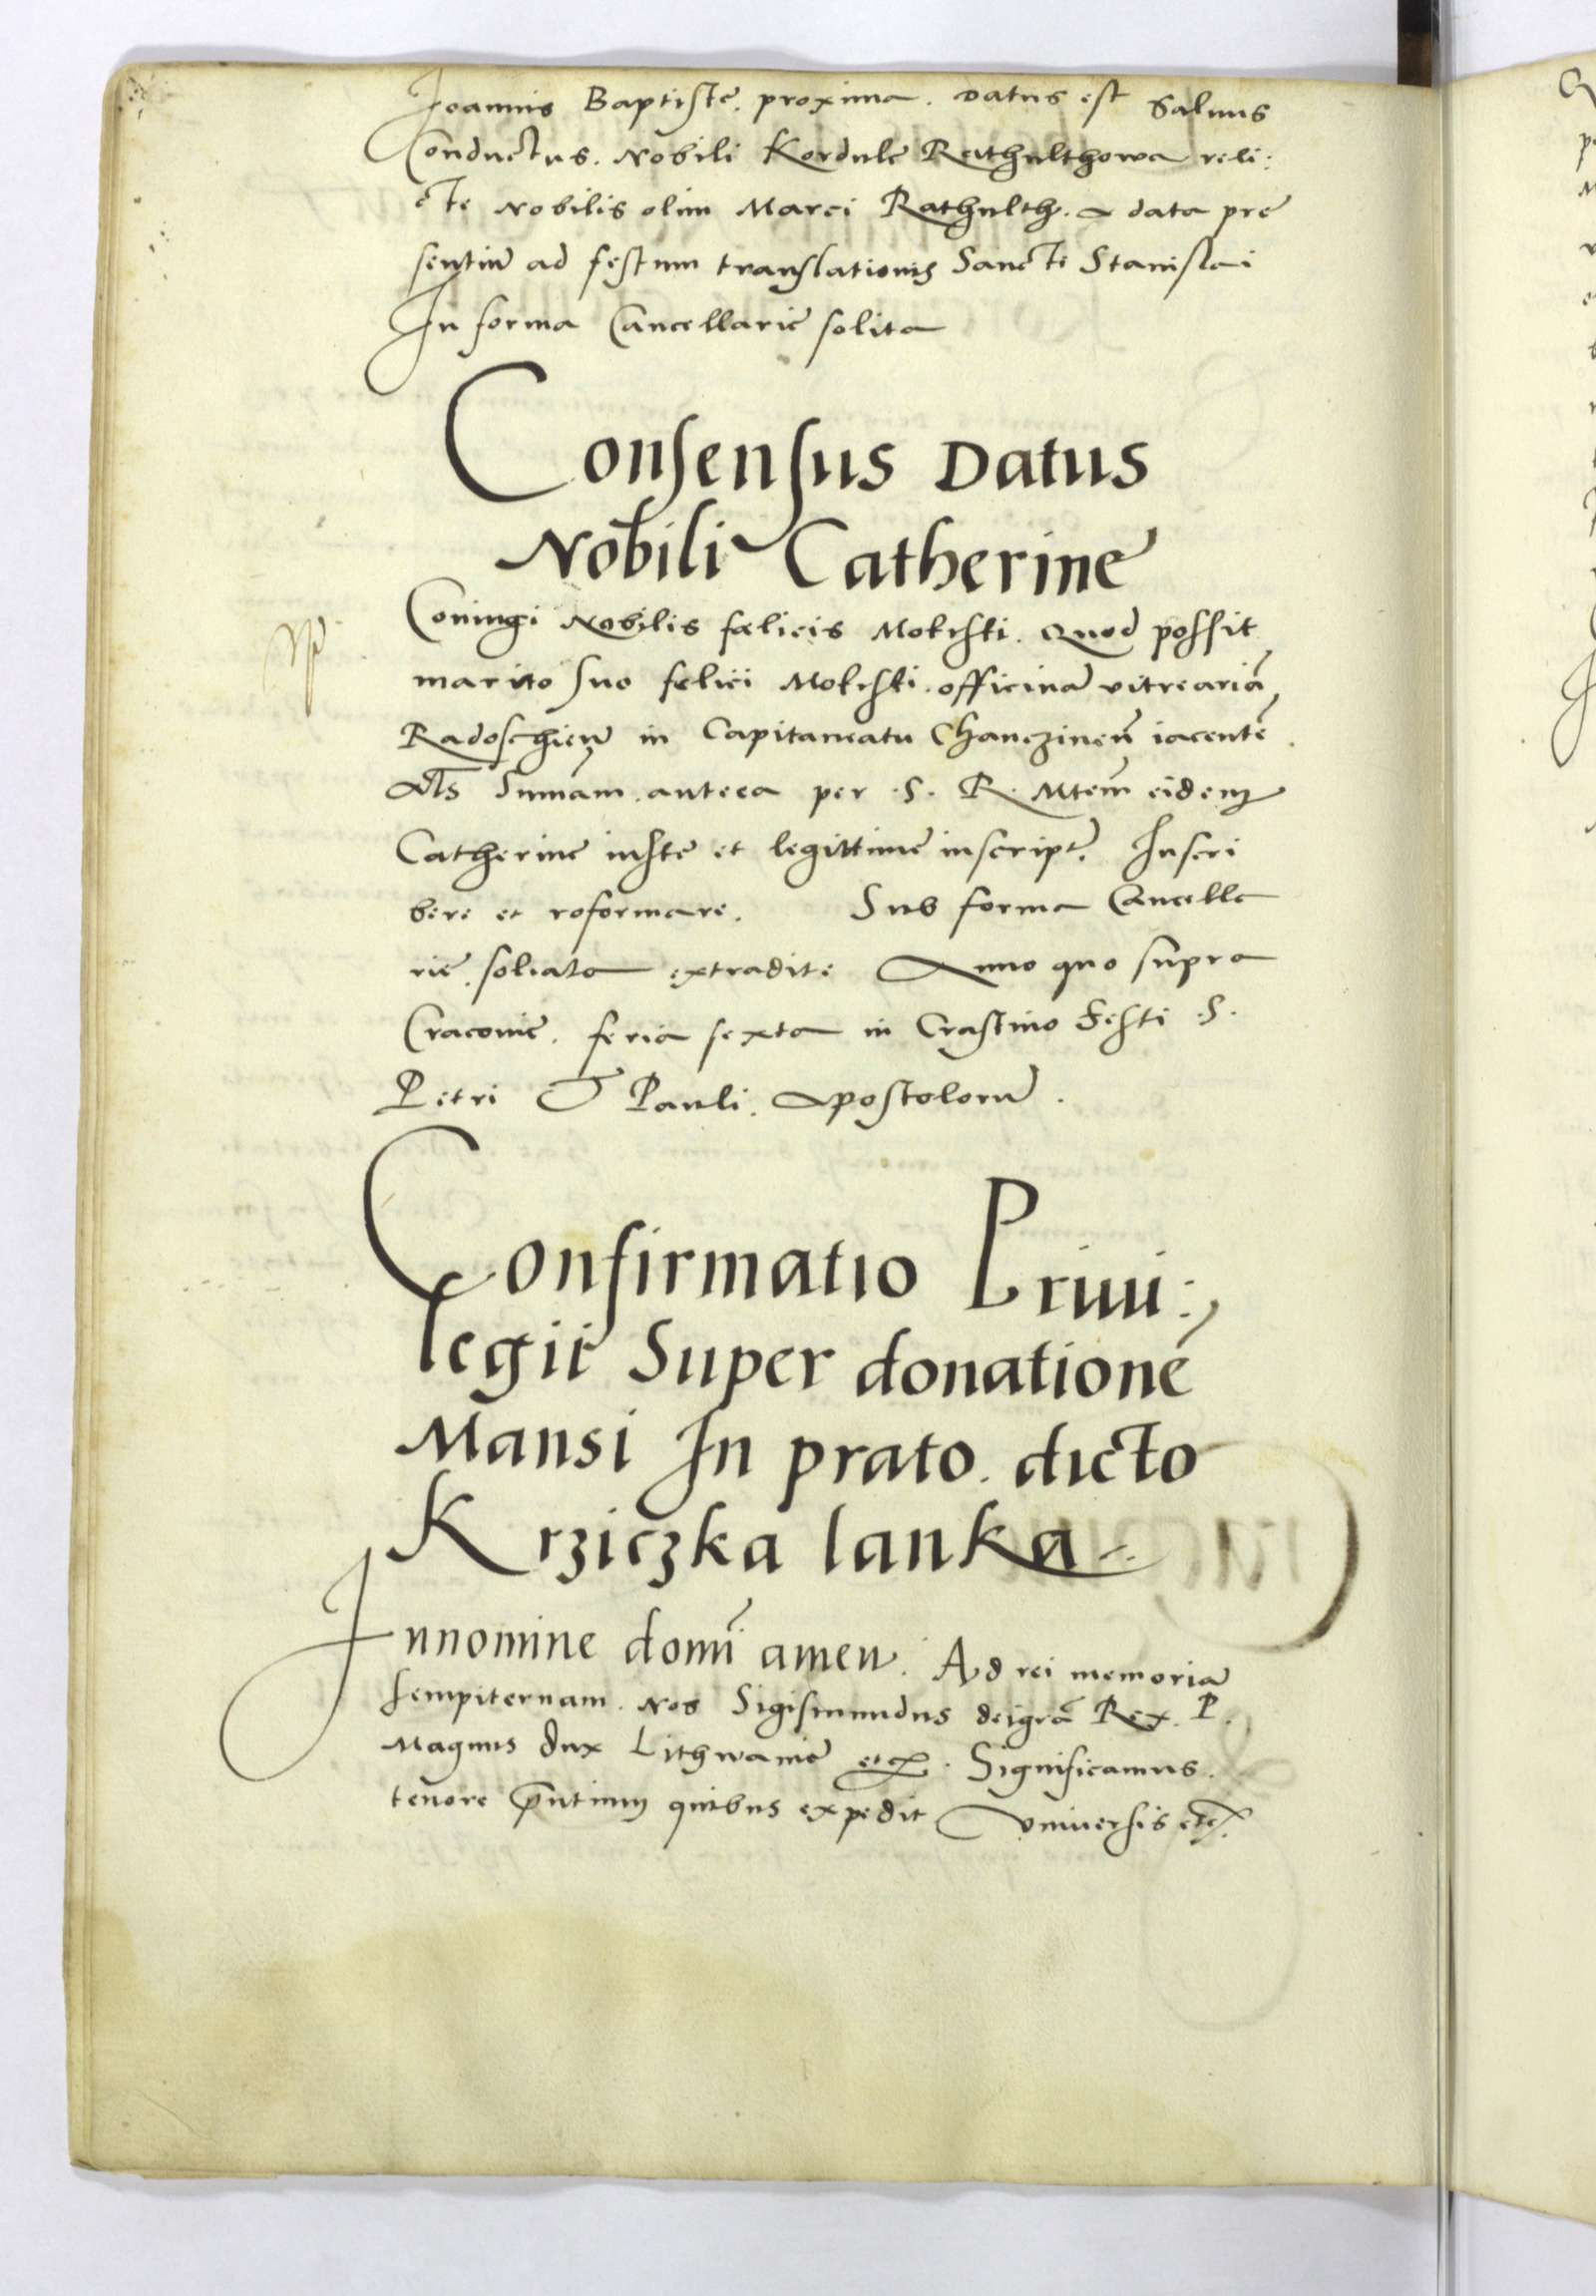 Joannis Baptiste. proxima. Datus est Saluus
Conductus. Nobili Kordule Rathulthowa reli:
cte Nobilis olim Marci Rathulth. a data pre
sentiu̅ ad festum translationis Sancti Stanislai
In forma Cancellarie solita
Consensus Datus
Nobili Catherine
Coniugi Nobilis fęlicis Mokrski. Quod possit
marito suo felici Mokrski. officina̅ vitrearia̅
Radoschicz in Capitaneatu Chanczinen̅ iacente̅
Als Suma̅m. antea per .S. R. Mtem̅ eidem
Catherine iuste et legittime inscript. Inscri
bere et roformare. Sub forma Cancella
rie. soliata extradite Anno quo supra
Cracovie. feria sexta in Crastino Festi .S.
Petri & Pauli. Apostoloru̅.
Confirmatio Priui:
legii Super donatione̅
Mansi In prato. dicto
Krziczka lanka
Innomine domi̅ amen. Ad rei memoria̅
sempiternam. Nos Sigismundus deigra̅ Rex. P.
Magnus dux Lithwanie etc. Significamus.
tenore p̅ntium quibus expedit Vniuersis etc.